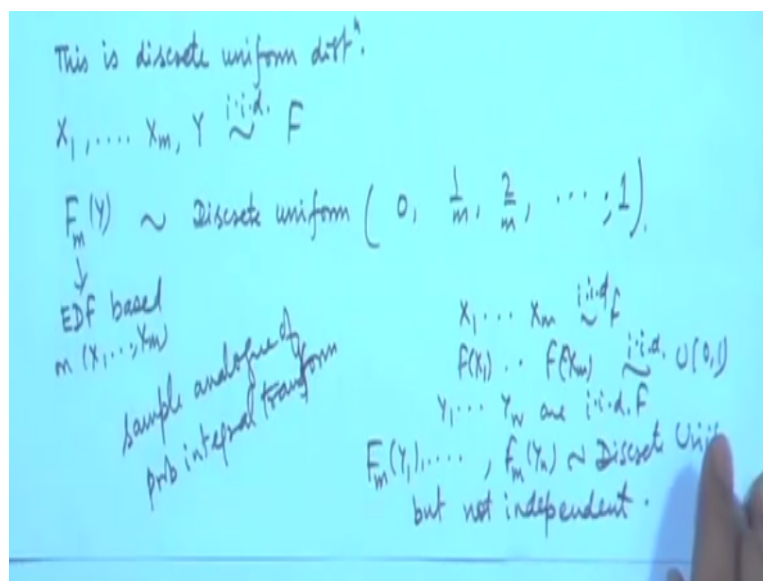 This is discrete uniform distⁿ.
X₁, .... Xₘ, Y i.i.d. ~ F
Fₘ(Y) ~ Discrete uniform ( 0, 1/m, 2/m, ...., 1).
↓
EDF based
m (X₁, .., Xₘ)
sample analogue of
prob integral transform
X₁ ... Xₘ i.i.d ~ F
F(X₁) .. F(Xₘ) i.i.d. ~ U(0,1)
Y₁ ... Yₙ are i.i.d. F
Fₘ(Y₁), ...., Fₘ(Yₙ) ~ Discret Unif
but not independent.